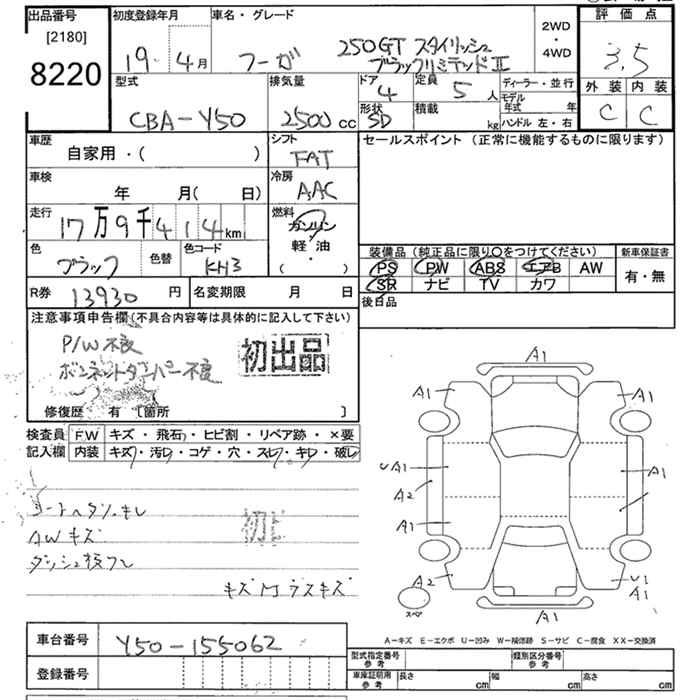 出品番号
[2180]
8220
初度登録年月
19 4月
車名・グレード
フーガ
250GT スタイリッシュ
ブラックリミテッドⅡ
2WD
・
4WD
評価点
3.5
外装 内装
C C
型式
CBA-Y50
排気量
2500cc
ドア
4
定員
5人
形状
SD
積載
kg
ディーラー・並行
モデル年式 年
ハンドル 左・右
車歴
自家用・( )
シフト
FAT
セールスポイント (正常に機能するものに限ります)
車検
年 月( 日)
冷房
AAC
走行
17万9千414km
燃料
ガソリン
軽・油
・( )
色
ブラック
色替
色コード
KH3
装備品 (純正品に限り○をつけてください)
PS PW ABS エアB AW
SR ナビ TV カワ
新車保証書
有・無
R券 13930円
名変期限 月 日
後日品
注意事項申告欄(不具合内容等は具体的に記入して下さい)
P/W不良
ボンネットダンパー不良
初出品
修復歴 有 [箇所 ]
検査員記入欄
FW キズ・飛石・ヒビ割・リペア跡・×要
内装 キズ・汚レ・コゲ・穴・スレ・キレ・破レ
シートヘタリ、キレ
AWキズ
キズ
A1
A1
A1
UA1
A2
A1
A1
A2
U1
A1
A1
スペア
A-キズ E-エクボ U-凹み W-補修跡 S-サビ C-腐食 XX-交換済
車台番号 Y50-155062
登録番号
型式指定番号
参考
類別区分番号
参考
車庫証明用
参考
長さ cm 幅 cm 高さ cm